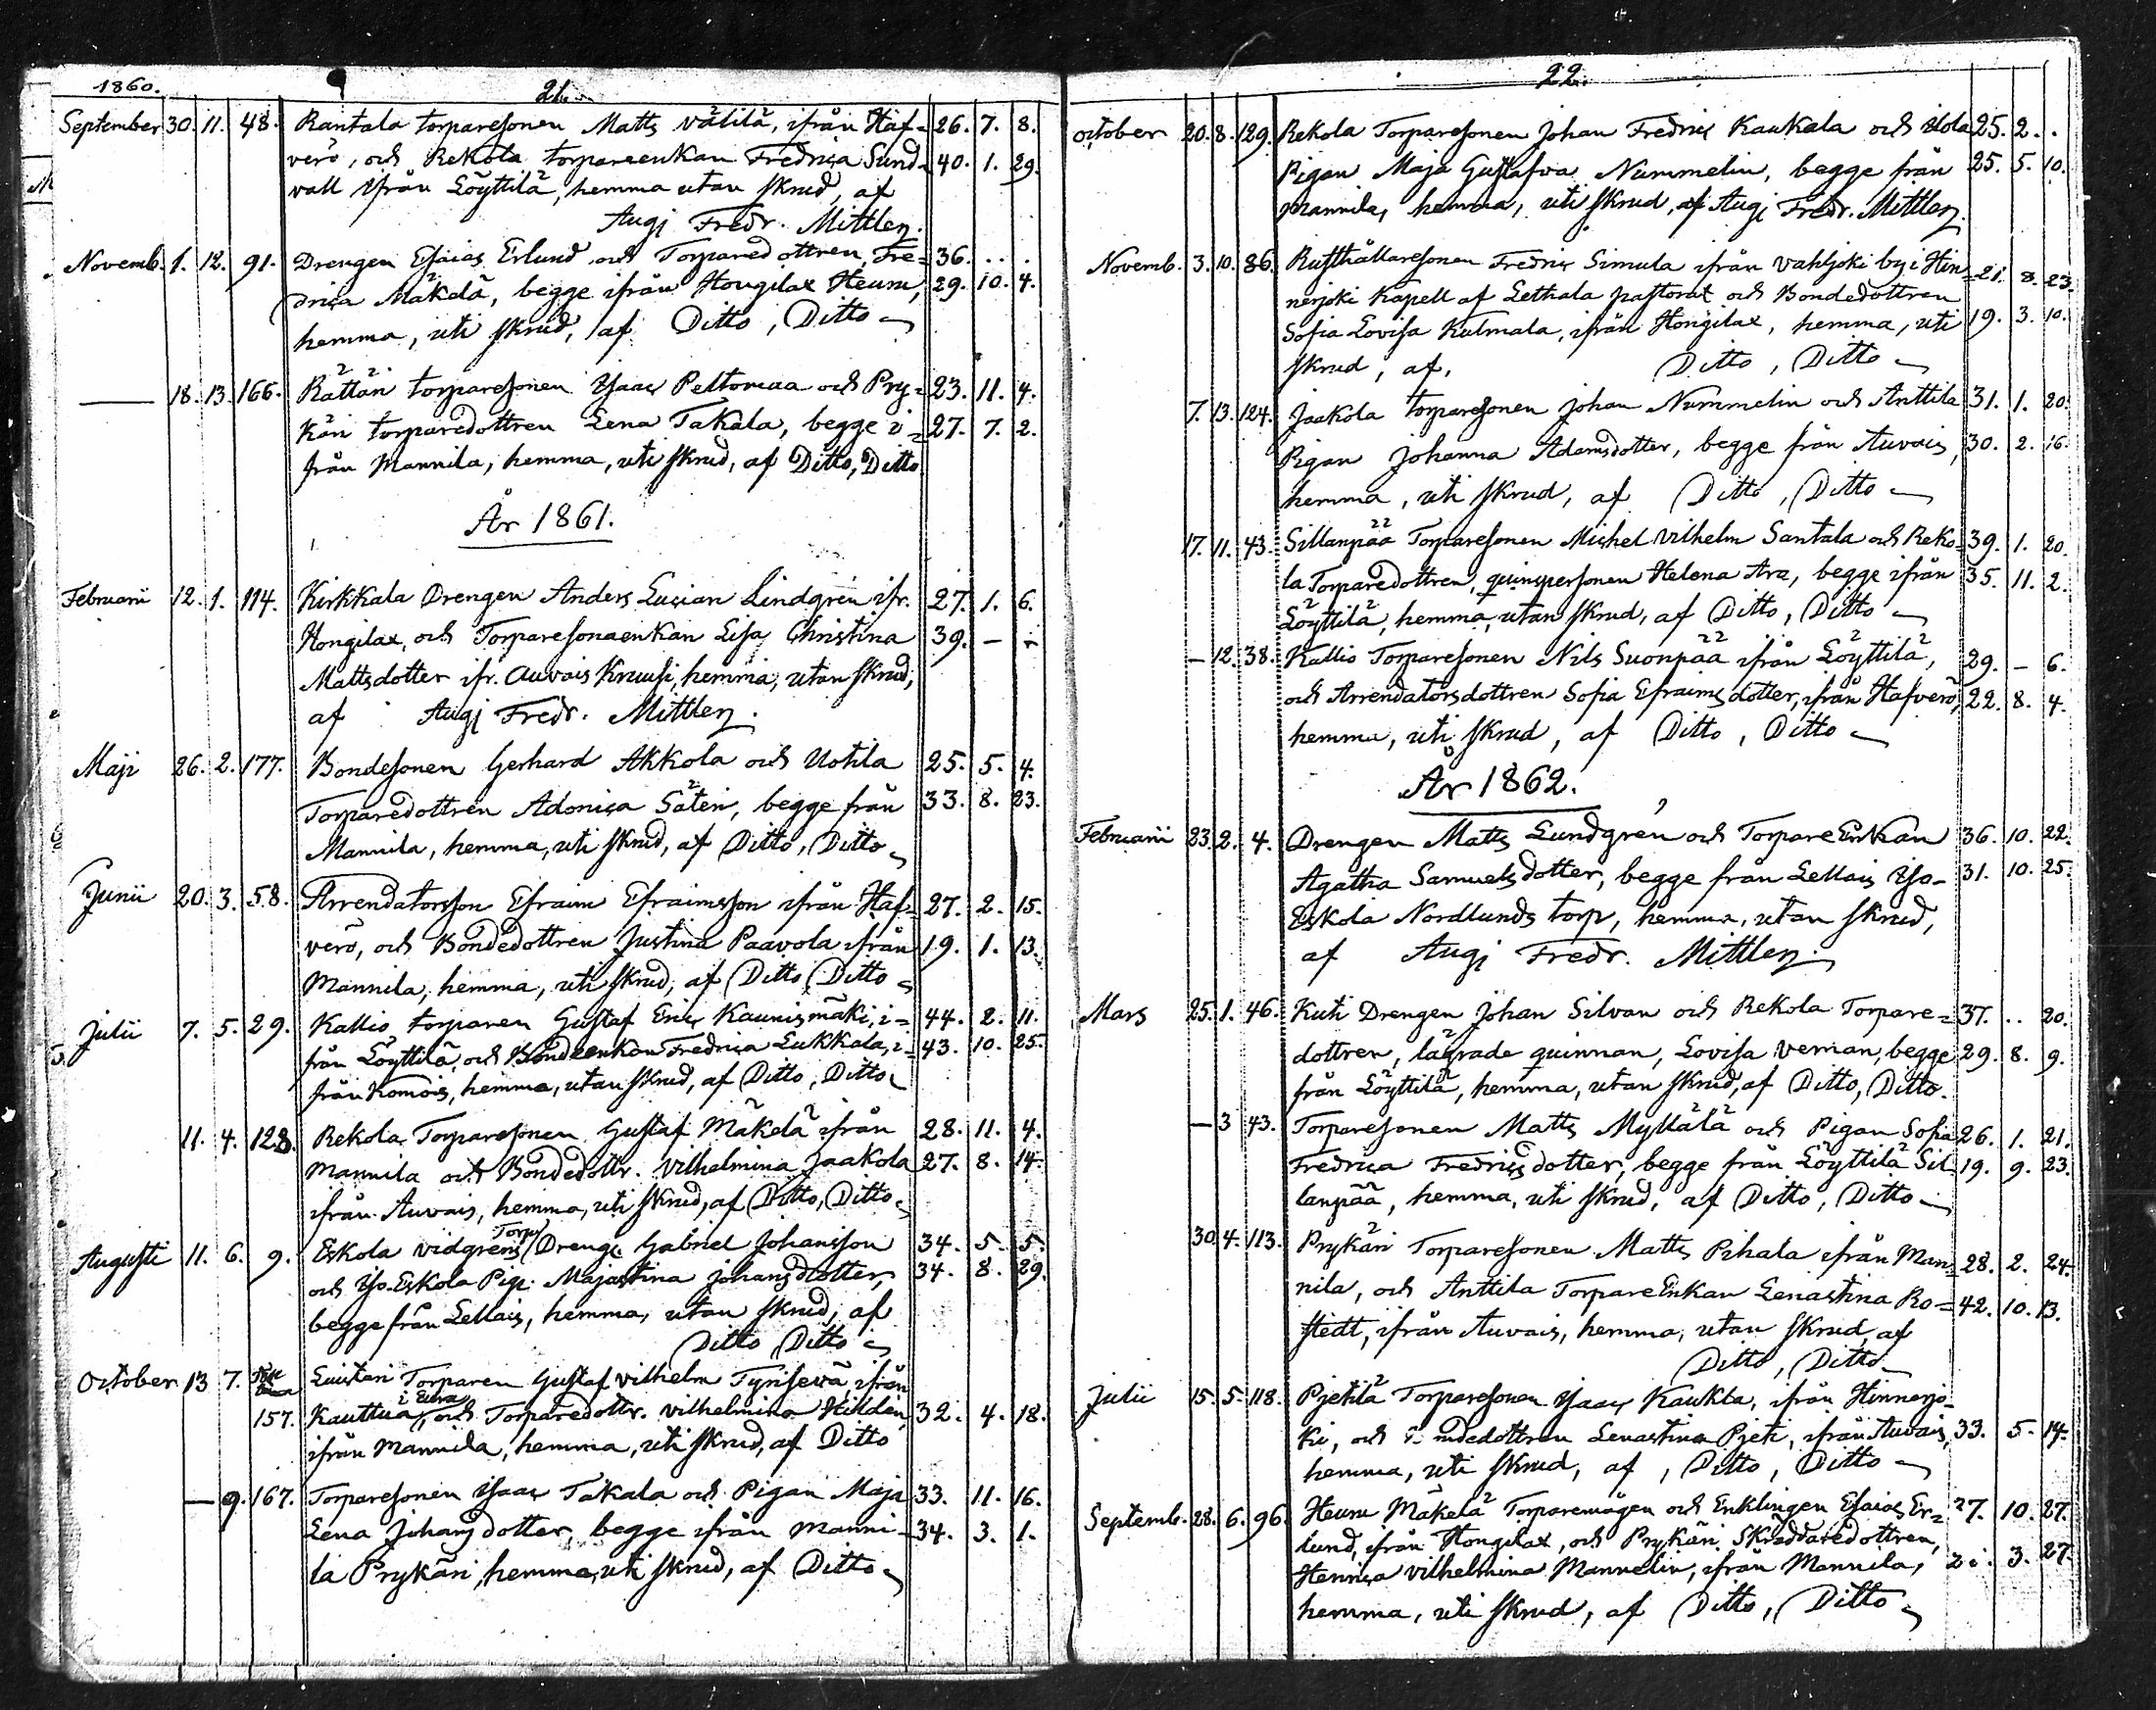 1860.
21.
September 30. 11. 48. Rantala torparesonen Matts Välilä, ifrån Haf= 26. 7. 8.
verö, och Rekola torpareenkan Fredrica Sund= 40. 1. 29.
vall ifrån Löyttilä, hemma utan skrud, af
Augj Fredr. Mittler.
Novemb. 1. 12. 91. Drengen Esaias Erlund och Torparedottren, Fre= 36. . . .
drica Mäkelä, begge ifrån Hongilax Heuru, 29. 10. 4.
hemma, uti skrud, af Ditto, Ditto
— 18. 13. 166. Rättäri torparesonen Isaac Peltomaa och Pry= 23. 11. 4.
käri torparedottren Lena Takala, begge i= 27. 7. 2.
från Mannila, hemma, uti skrud, af Ditto, Ditto
År 1861.
Februarii 12. 1. 114. Kirkkala Drengen Anders Lucian Lindgrén ifr. 27. 1. 6.
Hongilax, och Torparesonaenkan Lisa Christina 39. – –
Mattsdotter ifr. Auvais Kruusi, hemma, utan skrud,
af Augj Fredr. Mittler.
Maji 26. 2. 177. Bondesonen Gerhard Akkola och Uotila 25. 5. 4.
Torparedottren Adonica Säteri, begge från 33. 8. 23.
Mannila, hemma, uti skrud, af Ditto, Ditto
Junii 20. 3. 58. Arrendatorsson Efraim Efraimsson ifrån Haf= 27. 2. 15.
verö, och Bondedottren Justina Paavola ifrån 19. 1. 13.
Mannila, hemma, uti skrud, af Ditto, Ditto
Julii 7. 5. 29. Kallio torparen Gustaf Eric Kaunismäki, i= 44. 2. 11.
från Löyttilä, och Bondeenkan Fredrica Lukkala, i= 43. 10. 25.
från Komois, hemma, utan skrud, af Ditto, Ditto
11. 4. 128. Rekola Torparesonen Gustaf Mäkelä ifrån 28. 11. 4.
Mannila och Bondedottr. Vilhelmina Jaakola 27. 8. 14.
ifrån Auvais, hemma, uti skrud, af Ditto, Ditto
Augusti 11. 6. 9. Eskola Vidgrens Torp Dreng. Gabriel Johansson 34. 5. 5.
och Iso-Eskola Pig. Majastina Johansdotter, 34. 8. 29.
begge från Lellais, hemma, utan skrud, af
Ditto Ditto
October 13 7. Luistari Torparen Gustaf Vilhelm Tyrisevä, ifrån
157. Kauttua i Eura, och Torparedottr. Vilhelmina Hildén, 32. 4. 18.
ifrån Mannila, hemma, uti skrud, af Ditto
— 9. 167. Torparesonen Isaac Takala och Pigan Maja 33. 11. 16.
Lena Johansdotter, begge ifrån Manni- 34. 3. 1.
la Prykäri, hemma, uti skrud, af Ditto
22.
October 20. 8. 129. Rekola Torparesonen Johan Fredric Kaukala och 25. 2. .
Pigan Maja Gustafva Nummelin, begge från 25. 5. 10.
Mannila, hemma, uti skrud, af Augj Fredr. Mittler.
Novemb. 3. 10. 86. Rusthållaresonen Fredric Simula ifrån Vahljoki by i Hin= 21. 8. 23.
nerjoki Kapell af Lethala pastorat och Bondedottren
Sofia Lovisa Kulmala, ifrån Hongilax, hemma, uti 19. 3. 10.
skrud, af, Ditto, Ditto
7. 13. 124. Jaakola torparesonen Johan Nummelin och Anttila 31. 1. 20.
Pigan Johanna Adamsdotter, begge från Auvais, 30. 2. 16.
hemma, uti skrud, af Ditto, Ditto
17. 11. 43. Sillanpää Torparesonen Michel Vilhelm Santala och Reko- 39. 1. 20.
la Torparedottren, quinspersonen Helena Ara, begge ifrån 35. 11. 2.
Löyttilä, hemma, utan skrud, af Ditto, Ditto
— 12. 38. Kallio Torparesonen Nils Suonpää ifrån Löyttilä, 29. – 6.
och Arrendatorsdottren Sofia Efraimsdotter, ifrån Hafverö, 22. 8. 4.
hemma, uti skrud, af Ditto, Ditto
År 1862.
Februarii 23. 2. 4. Drengen Matts Lundgrén och TorpareEnkan 36. 10. 22.
Agatha Samuelsdotter, begge från Lellais Iso- 31. 10. 25.
Eskola Nordlunds torp, hemma, utan skrud,
af Augj Fredr. Mittler.
Mars 25. 1. 46. Kuti Drengen Johan Silvan och Rekola Torpare= 37. .. 20.
dottren, lägrade quinnan, Lovisa Verman, begge 29. 8. 9.
från Löyttilä, hemma, utan skrud, af Ditto, Ditto.
— 3 43. Torparesonen Matts Myllälä och Pigan Sofia 26. 1. 21.
Fredrica Fredricsdotter, begge från Löyttilä Sil- 19. 9. 23.
lanpää, hemma, uti skrud, af Ditto, Ditto
30. 4. 113. Prykäri Torparesonen Matts Pihala ifrån Man= 28. 2. 24.
nila, och Anttila TorpareEnkan Lenastina Ro= 42. 10. 13.
stedt, ifrån Auvais, hemma, utan skrud, af
Ditto, Ditto
Julii 15. 5. 118. Pjetilä Torparesonen Isaac Kaukla, ifrån Hinnerjo-
ki, och Bondedottren Lenastina Pjeti, ifrån Auvais, 33. 5. 14.
hemma, uti skrud, af, Ditto, Ditto
Septemb. 28. 6. 96. Heuru Mäkelä Torparemågen och Enklingen Esaias Er= 27. 10. 27.
lund, ifrån Hongilax, och Prykäri Skräddaredottren,
Henrica Vilhelmina Mannelin, ifrån Mannila, 21. 3. 27.
hemma, uti skrud, af Ditto, Ditto